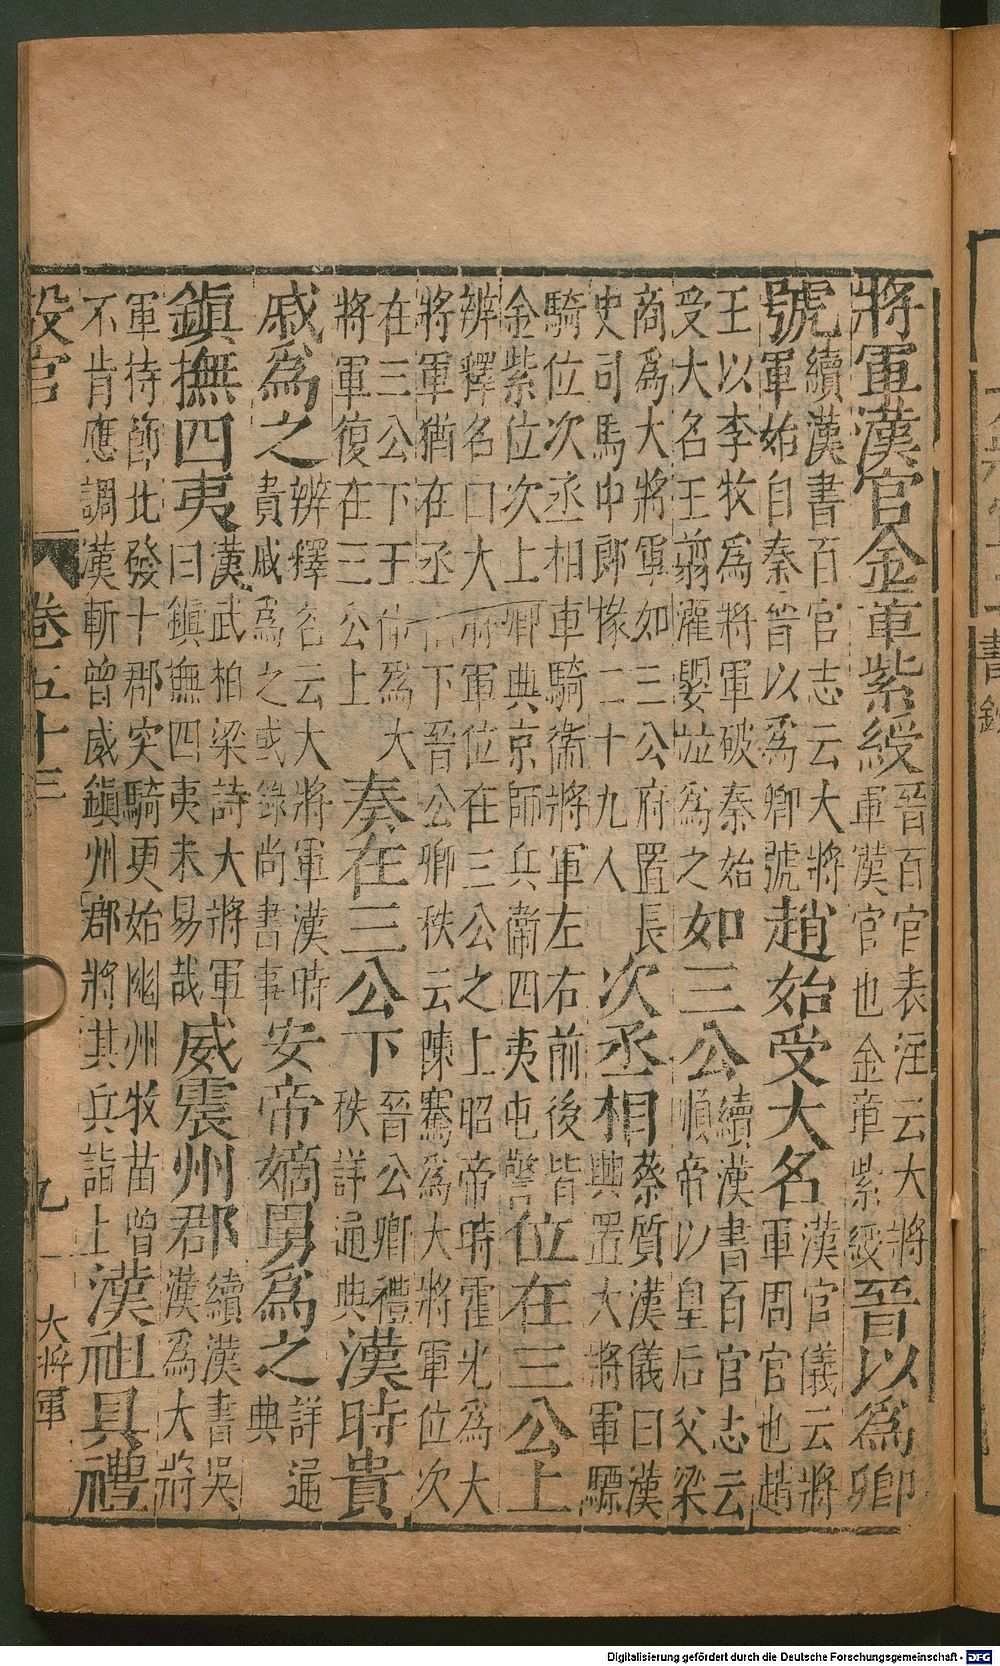 將軍漢官金章紫綬晉百官表注云大將軍漢官也金章紫綬晉以為卿
號續漢書百官志云大將軍始自秦晉以為卿號趙始受大名漢官儀云將軍周官也趙
王以李牧為將軍破秦始受大名王翦灌嬰竝為之如三公續漢書百官志云順帝以皇后父梁
商為大將軍如三公府置長史司馬中郎掾二十九人次丞相蔡質漢儀曰漢興置大將軍驃
騎位次丞相車騎衞將軍左右前後皆金紫位次上卿典京師兵衞四夷屯警位在三公上
辨釋名曰大將軍位在三公之上昭帝時霍光為大將軍猶在丞相下晉公卿秩云陳騫為大將軍位次
在三公下王衍為大將軍復在三公上奏在三公下晉公卿禮秩詳通典漢時貴
戚為之辨釋名云大將軍漢時貴戚為之或錄尚書事安帝嫡舅為之詳通典
鎮撫四夷漢武柏梁詩大將軍曰鎮撫四夷未易哉威震州郡續漢書吳漢為大將
軍持節北發十郡突騎更始幽州牧苗曾不肯應調漢斬曾威鎮州郡郡將其兵詣上漢祖具禮
設官 卷五十三 九 大將軍
Digitalisierung gefördert durch die Deutsche Forschungsgemeinschaft - DFG